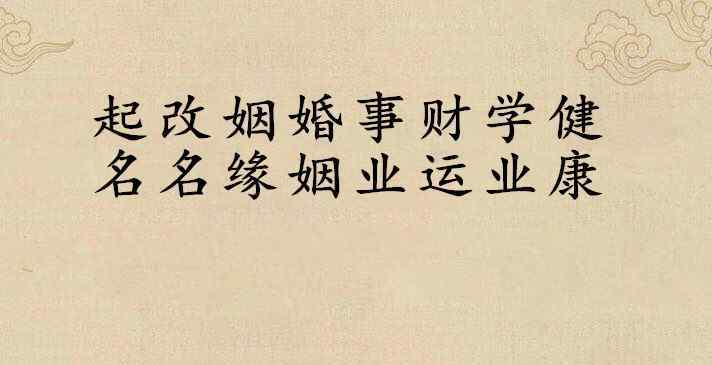 起名
改名
姻缘
婚姻
事业
财运
学业
健康